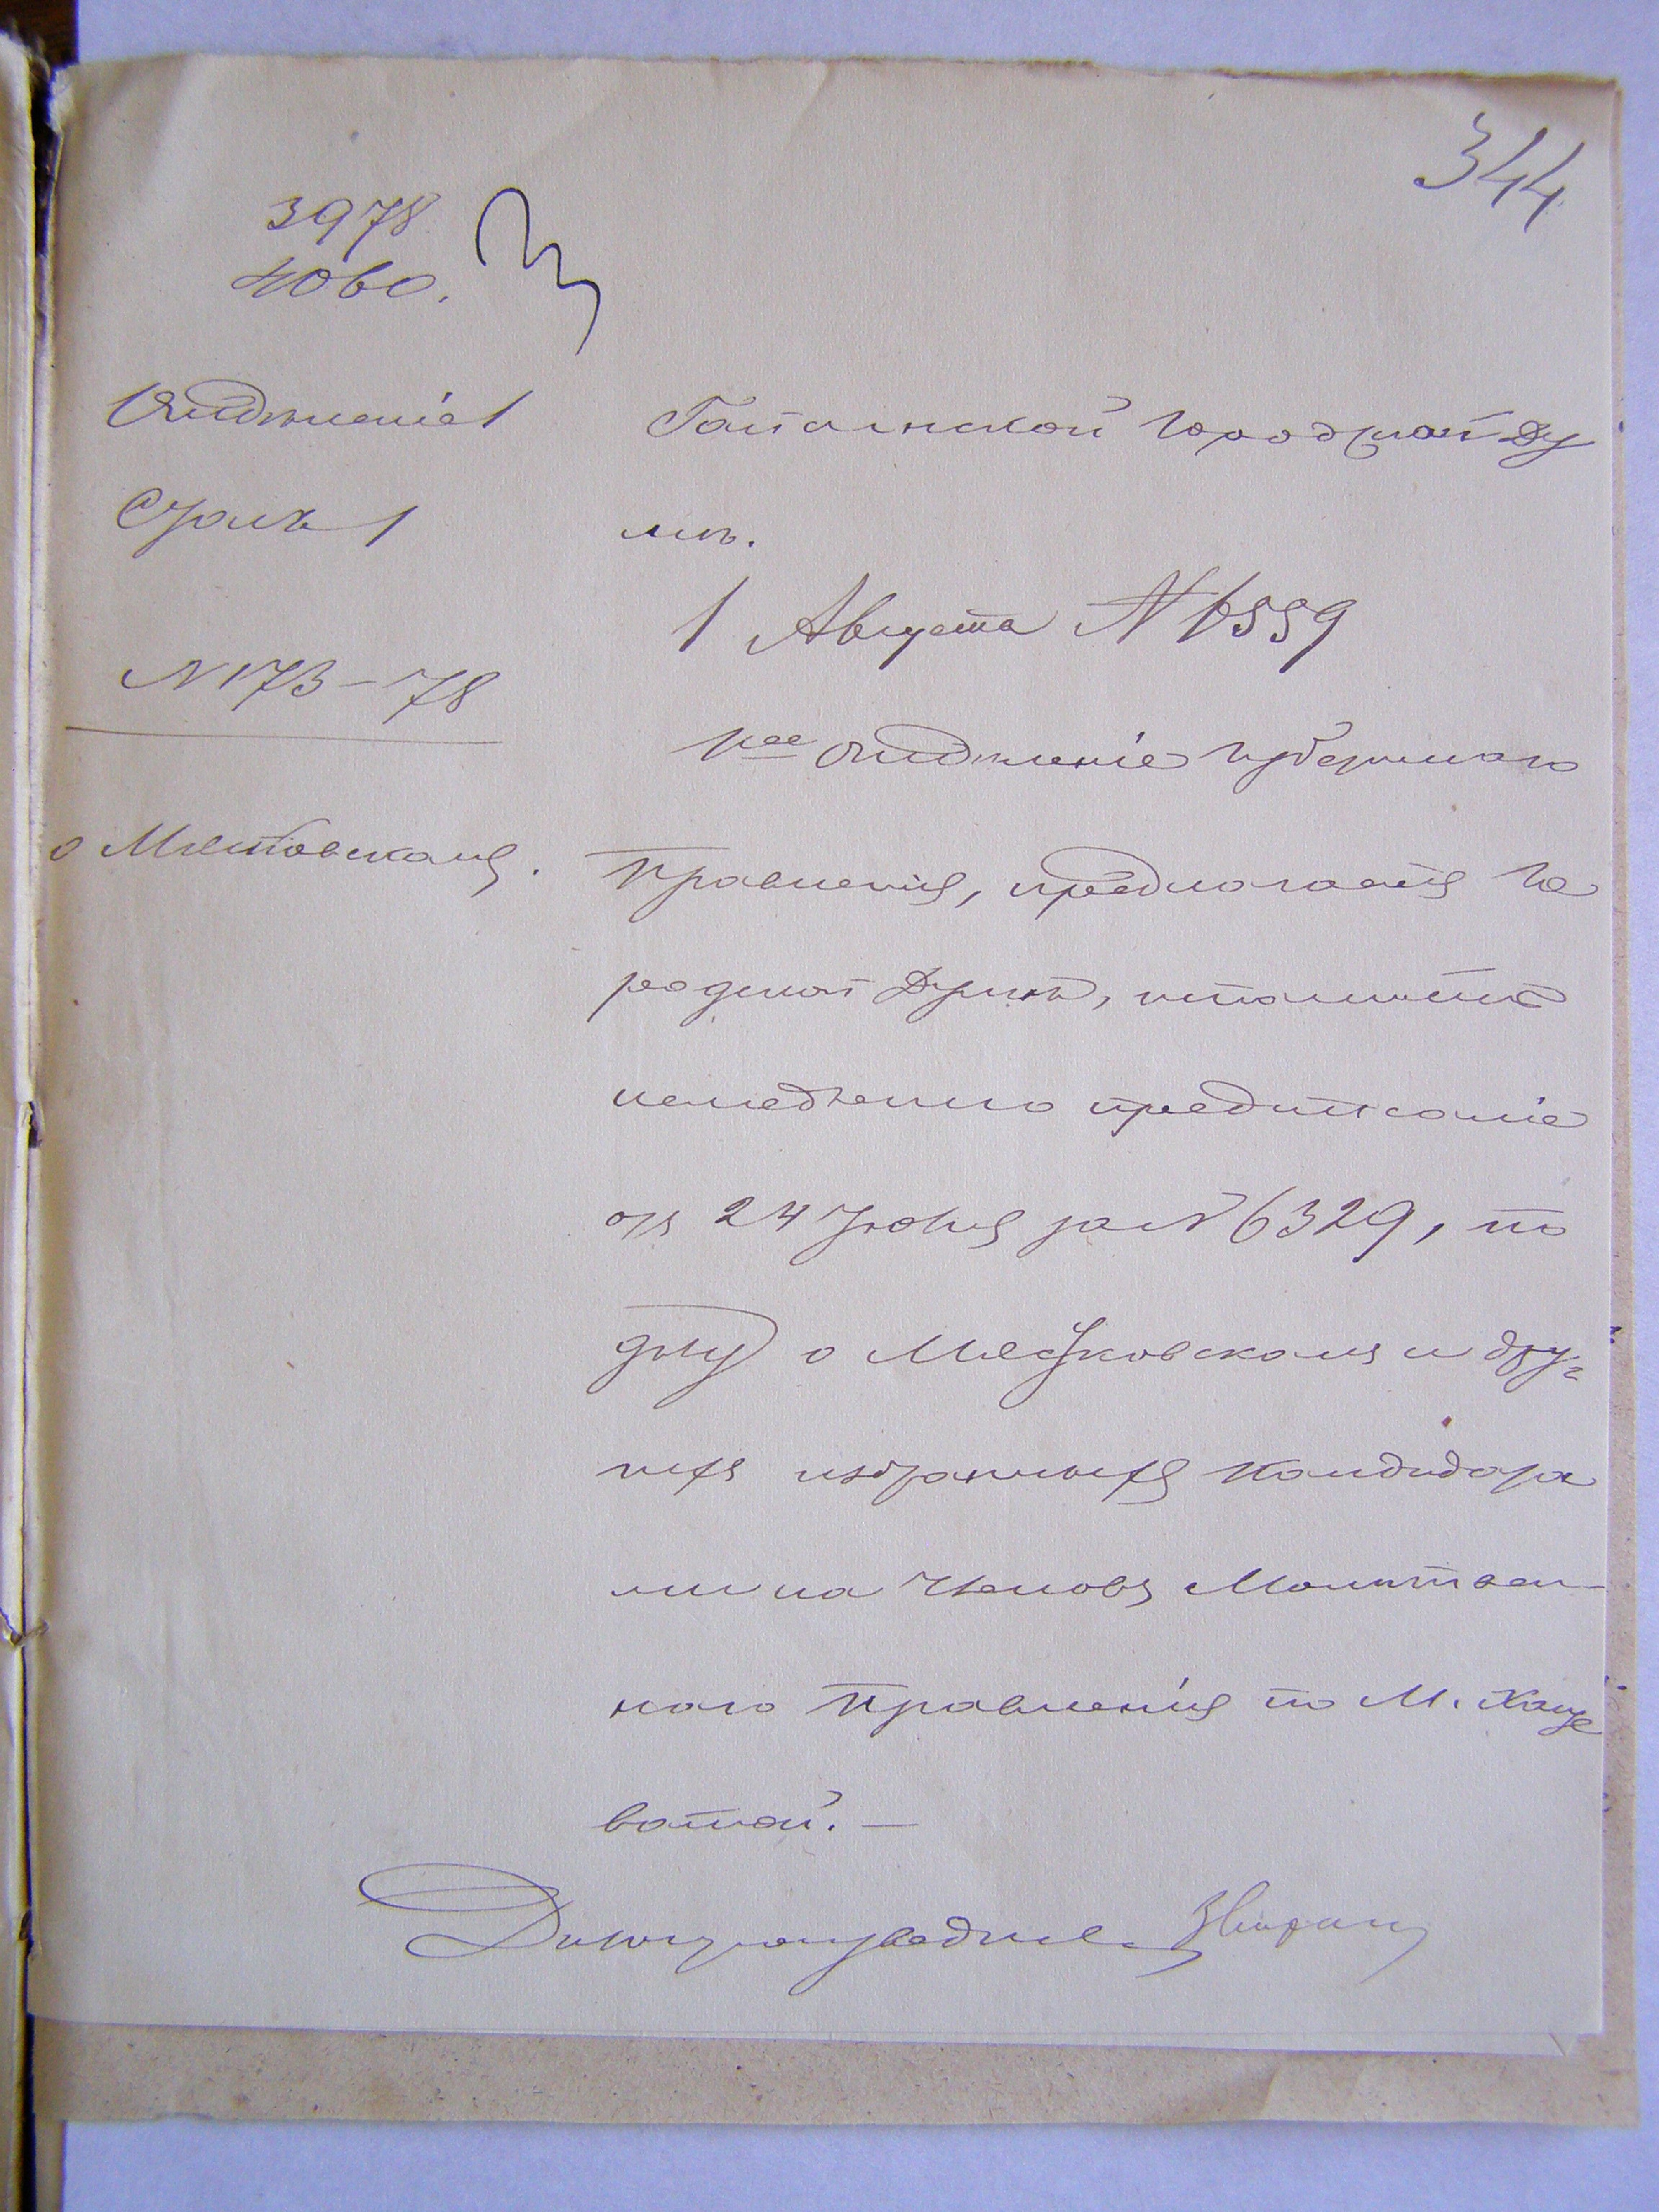 344
3978
4060.
Отдѣленіе 1
Столъ 1
N 173-78
о Мястковскомъ.
Гайсинской Городской Ду
мѣ.
1 Августа N 6559
1ое Отдѣленіе Губернскаго
Правленія, предлагаетъ Го
родской Думѣ, исполнить
немедленно предписаніе
отъ 24 Іюня за N 6329, по
дѣлу о Мястковскомъ и дру-
гихъ избранныхъ Кандидата
ми на Членовъ Молитвен-
наго Правленія по М. Хаще
ватой. —
Дѣлопроизводитель